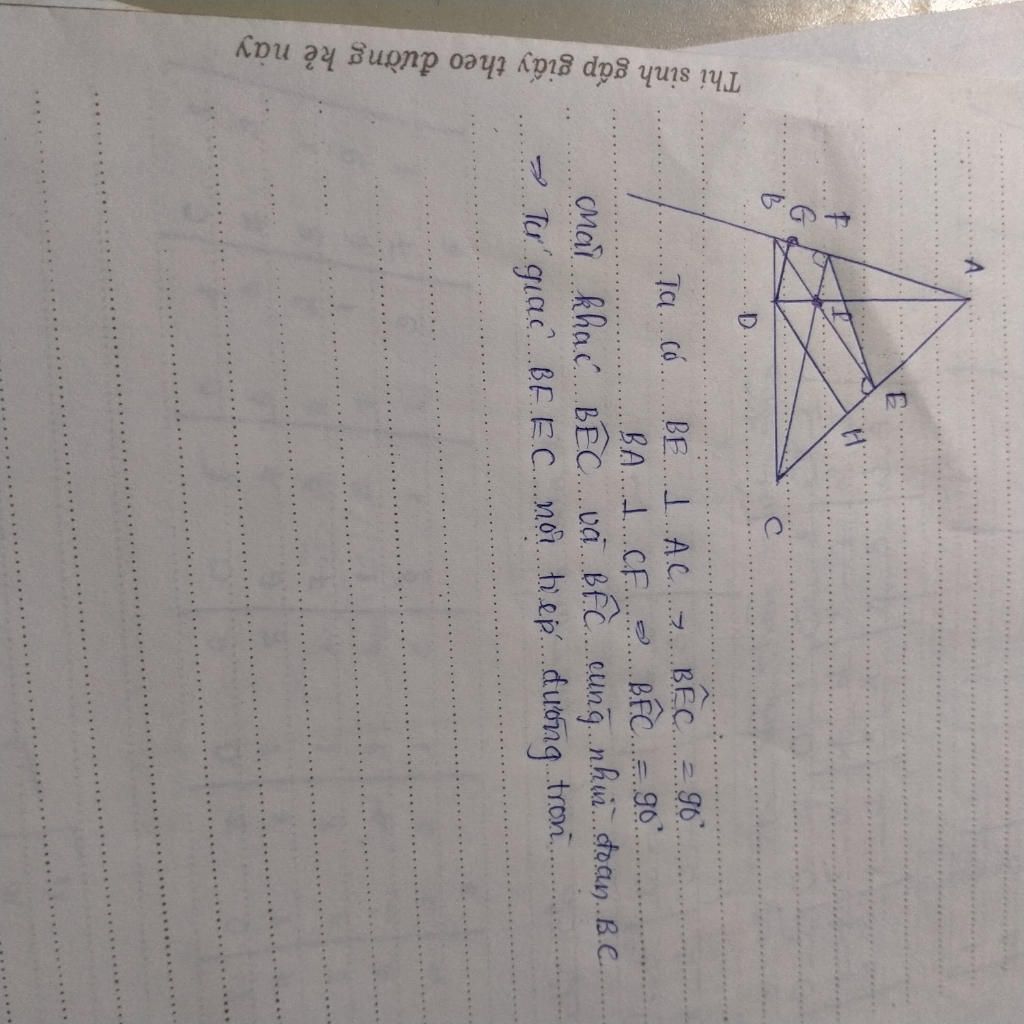 Thí sinh gấp giấy theo đường kẻ này
A
F
E
G
P
H
B
D
C
Ta có BE ⊥ AC → BÊC = 90°
BA ⊥ CF ⇒ BF̂C = 90°
Mặt khác BÊC và BF̂C cùng nhìn đoạn BC
⇒ Tứ giác BFEC nội tiếp đường tròn